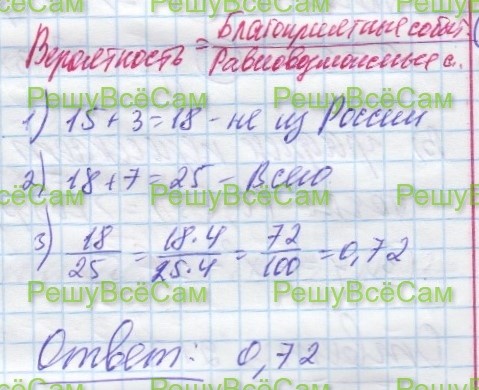 Вероятность = Благоприятные событ.
Равновозможные с.
РешуВсёСам РешуВсёСам
1) 15 + 3 = 18 - не из России
РешуВсёСам РешуВсёСам
2) 18 + 7 = 25 - Всего
РешуВсёСам РешуВсёСам
3) 18/25 = 18·4/25·4 = 72/100 = 0,72
РешуВсёСам РешуВсёСам
Ответ: 0,72
РешуВсёСам РешуВсёСам